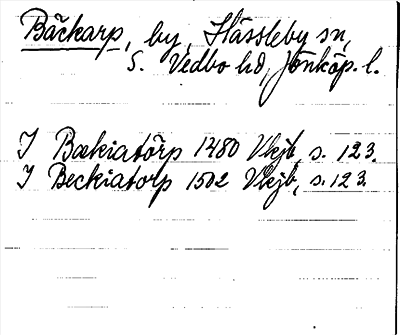 Bäckarp, by, Hässleby sn,
S. Vedbo hd, Jönköp. l.
I Bækiatörp 1480 Vkjb, s. 123.
I Beckiatorp 1502 Vkjb, s. 123.